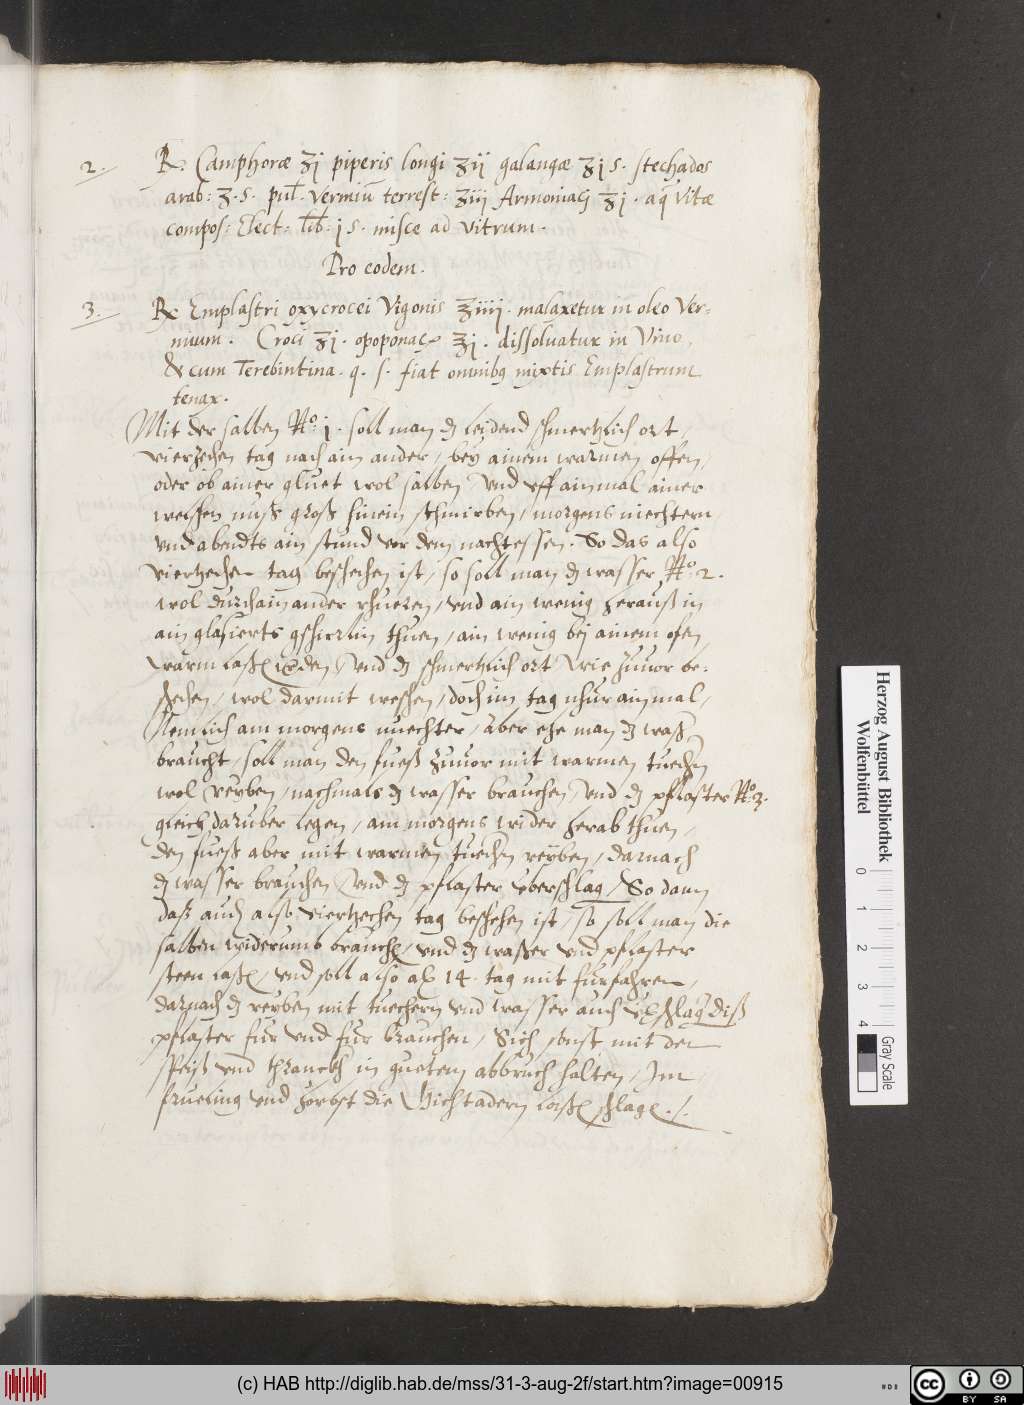 2. ℞. Camphoræ ʒj piperis longi ʒij galangæ ʒj s. stechados
arab: ʒ. s. pul. Vermiū terrest: ʒiij Armoniaci ʒj. aq̄ vitæ
compos: Elect: lib. j s. misce ad vitrum.
Pro eodem.
3. ℞ Emplastri oxycrocei Vigonis ʒiiij. malaxetur in oleo Ver=
mium. Croci ʒj. opoponac ʒj. dissoluatur in Vino,
& cum Terebintina. q. s. fiat omnibꝰ mixtis Emplastrum
tenax.
Mit der salben No. 1. soll man dz leidend schmertzlich ort,
vierzehen tag nach ain ander, bey ainem warmen offen,
oder ob ainer gluet wol salben, vnd vff ainmal ainer
welschen nuss gross hinein schmirben, morgens niechtern
vnd abendts ain stund vor dem nachtessen. So das also
viertzehen tag beschehen ist, so soll man dz wasser No. 2.
wol durchainander rhueren, vnd ain wenig herauss in
ain glasierts gschirrlin thuen, ain wenig bej ainem ofen
warm lassen werden, vnd dz schmertzlich ort wie zuuor be=
schehen, wol darmit weschen, doch im tag nhur ainmal,
Nemlich am morgens nuechter, Aber ehe man dz wasser
braucht, soll man den fuess zuuor mit warmen tuechern
wol reyben, nachmals dz wasser brauchen, vnd dz pflaster No. 3.
gleich daruber legen, am morgens wider herab thuen,
den fuess aber mit warmen tuechern reyben, darnach
dz wasser brauchen vnd dz pflaster vberschlag, So dann
dass auch also viertzechen tag beschehen ist, so soll man die
salben widerumb brauchen, vnd dz wasser vnd pflaster
steen lassen, vnd soll also alß 14. tag mit furfahren,
darnach dz reyben mit tuechern vnd wasser auch vberschlag diss
pflaster fur vnd fur brauchen, Sich sonst mit der
speiss vnd thranckh in guetem abbruch halten, Im
frueling vnd herbst die Gichtadern lassen schlagen ./.
Herzog August Bibliothek
Wolfenbüttel
0 1 2 3 4
Gray Scale
(c) HAB http://diglib.hab.de/mss/31-3-aug-2f/start.htm?image=00915
cc BY SA